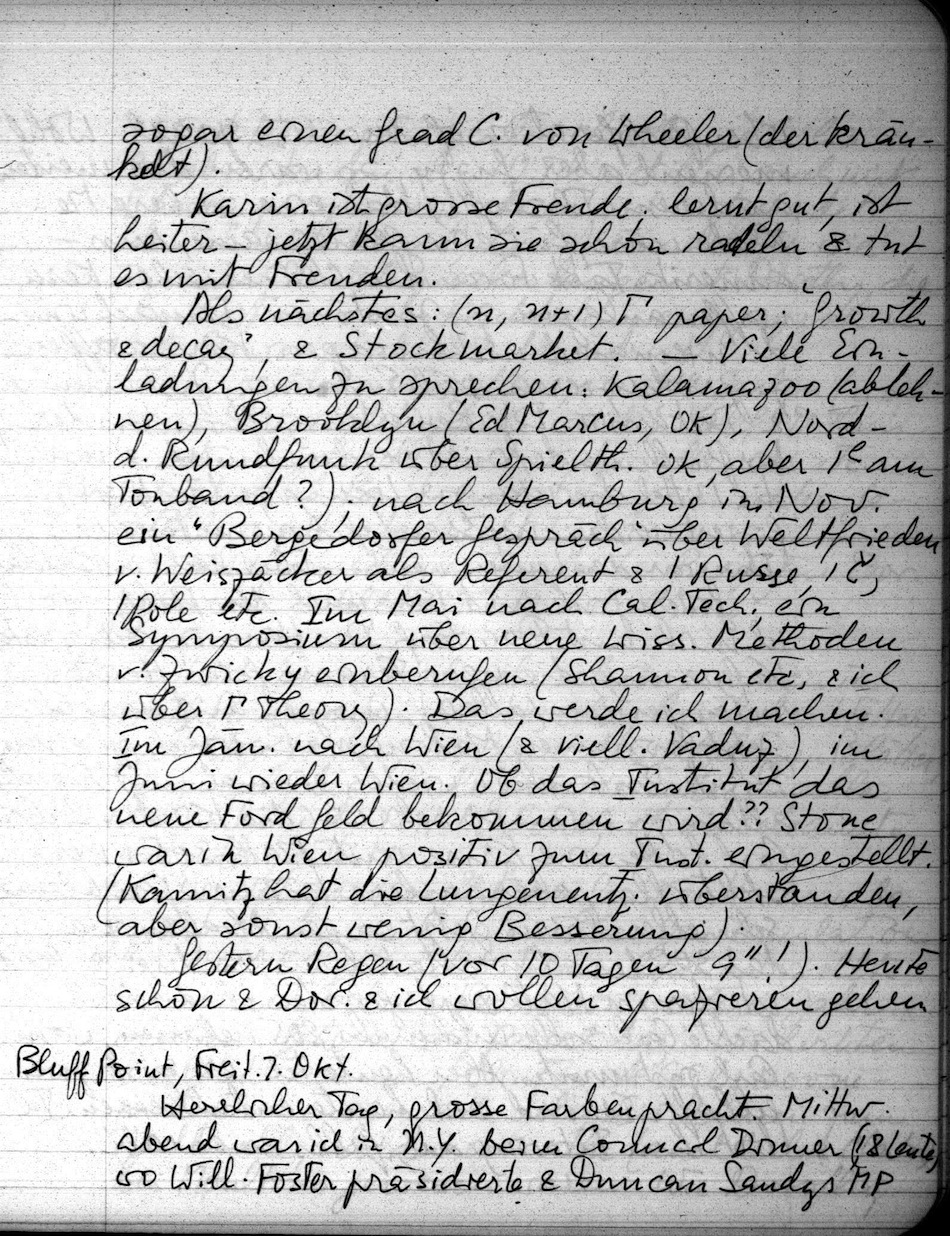 sogar einen Grad C. von Wheeler (der krän-
kelt).
Karin ist grosse Freude, lernt gut, ist
heiter – jetzt kann sie schön radeln & tut
es mit Freuden.
Als nächstes: (n, n+1) Γ paper; "Growth
& decay", & Stockmarket. — Viele Ein-
ladungen zu sprechen: Kalamazoo (ableh-
nen), Brooklyn (Ed Marcus, OK), Nord-
d. Rundfunk über Spielth. OK, aber am
Tonband?). nach Hamburg in Nov.
ein "Bergedorfer Gespräch" über Weltfrieden
v. Weiszäcker als Referent & 1 Russe, 1 Č,
1 Pole etc. Im Mai nach Cal. Tech, ein
Symposium über neue wiss. Methoden
v. Zwicky einberufen (Shannon etc, & ich
über Γ Theory). Das werde ich machen.
Im Jän. nach Wien (& viell. Vaduz), im
Juni wieder Wien. Ob das Institut das
neue Ford Geld bekommen wird?? Stone
war in Wien positiv zum Inst. eingestellt.
(Kamitz hat die Lungenentz. überstanden,
aber sonst wenig Besserung).
Gestern Regen (vor 10 Tagen 9"!). Heute
schön & Dor. & ich wollen spazieren gehen
Bluff Point, Freit. 7. Okt.
Herrlicher Tag, grosse Farbenpracht. Mittw.
abend war ich in N.Y. beim Council Dinner (18 Leute)
wo Will. Foster präsidierte & Duncan Sandys MP